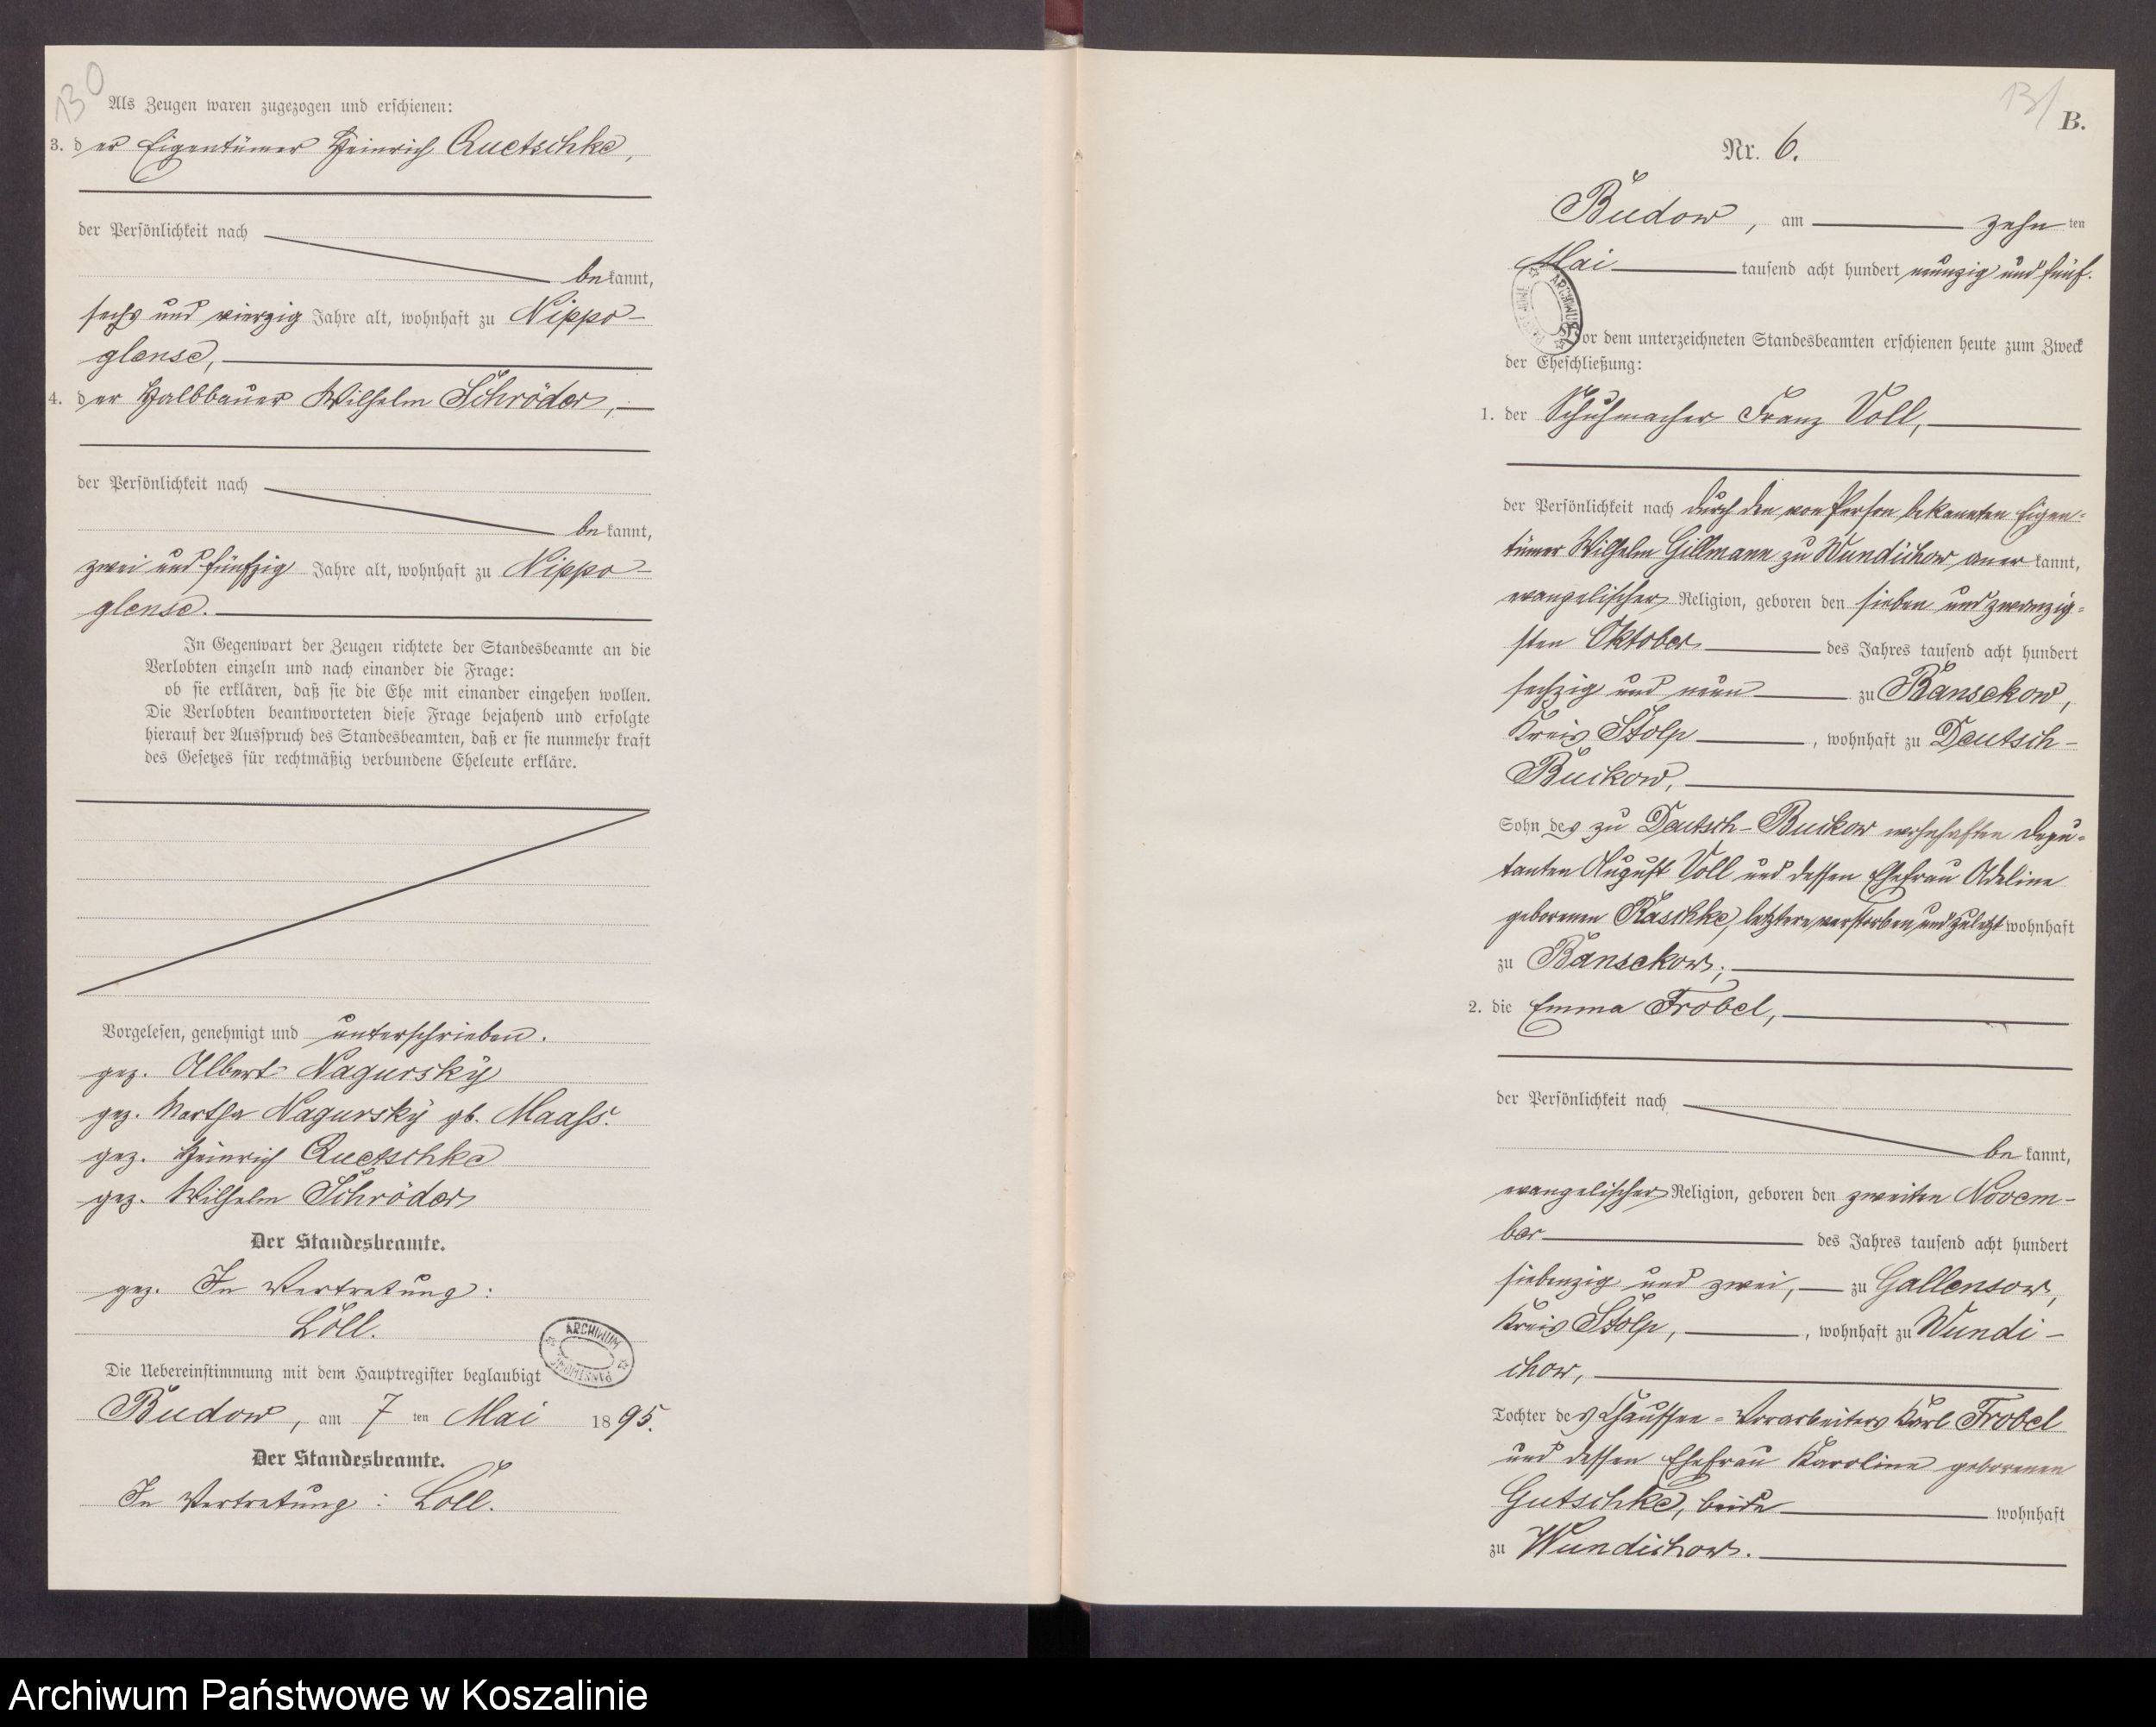 130
Als Zeugen waren zugezogen und erschienen:
3. der Eigentümer Heinrich Quetschke,
der Persönlichkeit nach
bekannt,
sechs und vierzig Jahre alt, wohnhaft zu Nippo-
glense,
4. der Halbbauer Wilhelm Schröder,
der Persönlichkeit nach
bekannt,
zwei und fünfzig Jahre alt, wohnhaft zu Nippo-
glense.
In Gegenwart der Zeugen richtete der Standesbeamte an die
Verlobten einzeln und nach einander die Frage:
ob sie erklären, daß sie die Ehe mit einander eingehen wollen.
Die Verlobten beantworteten diese Frage bejahend und erfolgte
hierauf der Ausspruch des Standesbeamten, daß er sie nunmehr kraft
des Gesetzes für rechtmäßig verbundene Eheleute erkläre.
Vorgelesen, genehmigt und unterschrieben.
gez. Albert Nagursky
gez. Martha Nagursky gb. Maaß.
gez. Heinrich Quetschke
gez. Wilhelm Schröder
Der Standesbeamte.
gez. In Vertretung:
Löll.
ARCHIWUM PAŃSTWOWE
Die Uebereinstimmung mit dem Hauptregister beglaubigt
Budow, am 7ten Mai 1895.
Der Standesbeamte.
In Vertretung: Löll.
131
B.
Nr. 6.
Budow, am zehnten
Mai tausend acht hundert neunzig und fünf.
ARCHIWUM PAŃSTWOWE
Vor dem unterzeichneten Standesbeamten erschienen heute zum Zweck
der Eheschließung:
1. der Schuhmacher Franz Voll,
der Persönlichkeit nach durch den von Person bekannten Eigen-
tümer Wilhelm Gillmann zu Wundichow anerkannt,
evangelischer Religion, geboren den sieben und zwanzig-
sten Oktober des Jahres tausend acht hundert
sechzig und neun zu Bansekow,
Kreis Stolp, wohnhaft zu Deutsch-
Buckow,
Sohn des zu Deutsch-Buckow wohnhaften Depu-
tanten August Voll und dessen Ehefrau Adeline
geborenen Raschke, letztere verstorben und zuletzt wohnhaft
zu Bansekow;
2. die Emma Frobel,
der Persönlichkeit nach
bekannt,
evangelischer Religion, geboren den zweiten Novem-
ber des Jahres tausend acht hundert
siebenzig und zwei, zu Gallensow,
Kreis Stolp, wohnhaft zu Wundi-
chow,
Tochter des Chaussee-Vorarbeiters Karl Frobel
und dessen Ehefrau Karoline geborenen
Gutschke, beide wohnhaft
zu Wundichow.
Archiwum Państwowe w Koszalinie